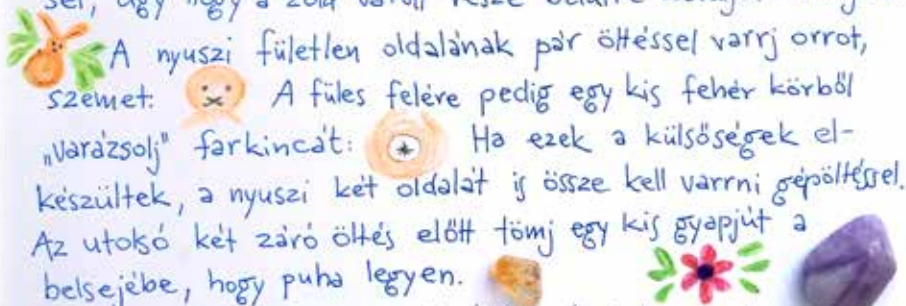 A nyuszi fületlen oldalának pár öltéssel varrj orrot,
szemet: A füles felére pedig egy kis fehér körből
„varázsolj" farkincát: Ha ezek a külsőségek el-
készültek, a nyuszi két oldalát is össze kell varrni gépöltéssel.
Az utolsó két záró öltés előtt tömj egy kis gyapjút a
belsejébe, hogy puha legyen.